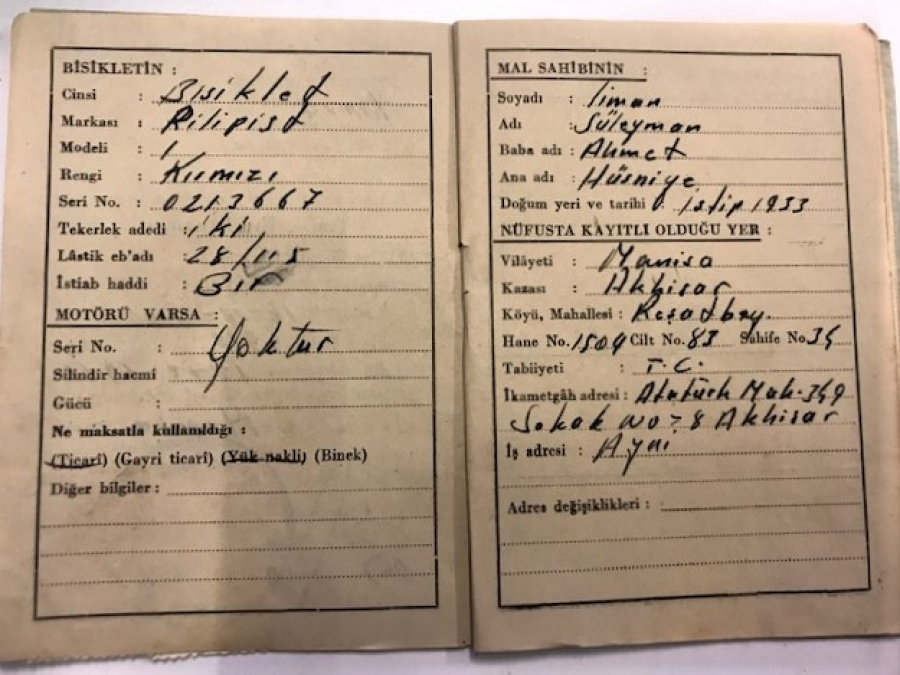 BİSİKLETİN :
Cinsi : Bisiklet
Markası : Pilipist
Modeli : 1
Rengi : Kırmızı
Seri No. : 0213667
Tekerlek adedi : iki
Lâstik eb'adı : 28/115
İstiab haddi : Bir
MOTÖRÜ VARSA :
Seri No. : Yoktur
Silindir hacmî
Gücü :
Ne maksatla kullanıldığı :
(Ticarî) (Gayri ticarî) (Yük nakli) (Binek)
Diğer bilgiler :
MAL SAHİBİNİN :
Soyadı : Liman
Adı : Süleyman
Baba adı : Ahmet
Ana adı : Hüsniye
Doğum yeri ve tarihi : İştip 1933
NÜFUSTA KAYITLI OLDUĞU YER :
Vilâyeti : Manisa
Kazası : Akhisar
Köyü, Mahallesi : Reşadbey.
Hane No. 1504 Cilt No. 83 Sahife No 34
Tabiiyeti : T.C.
İkametgâh adresi : Atatürk Mah. 349
Sokak No: 8 Akhisar
İş adresi : Aynı
Adres değişiklikleri :